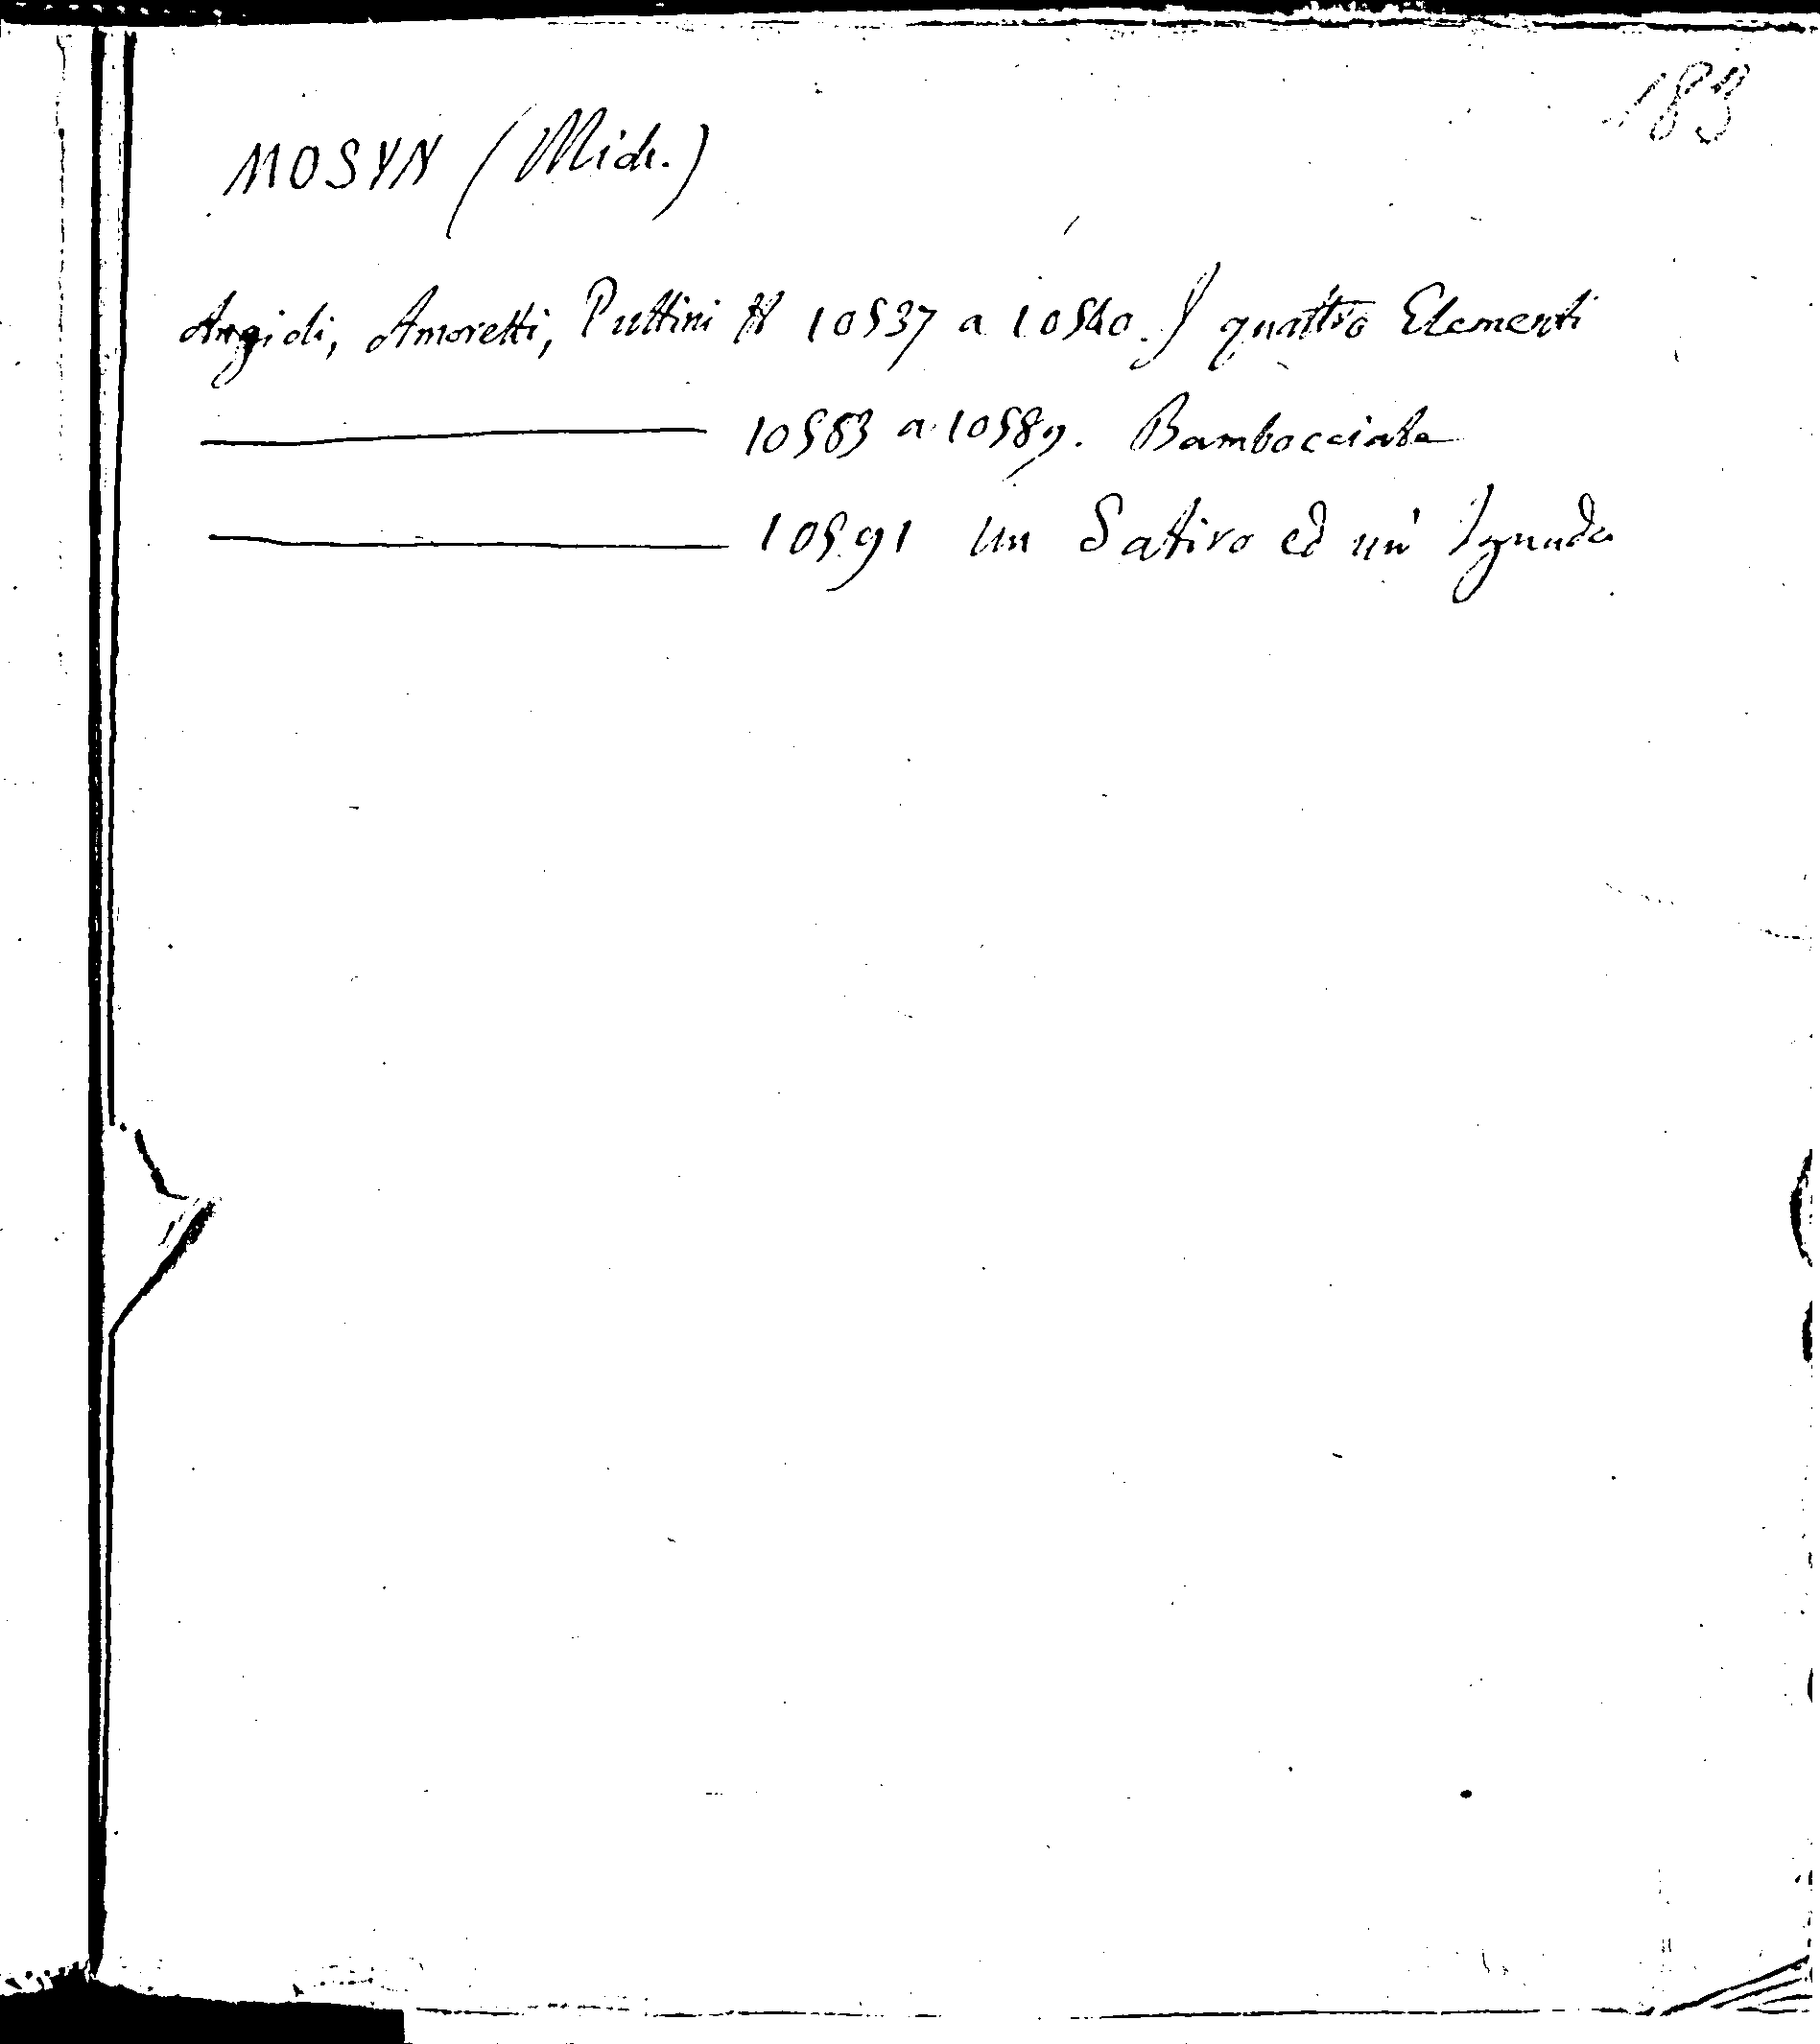 183
MOSYN (Mich.)
Angioli, Amoretti, Puttini N 10537 a 10540. I quattro Elementi
10583 a 10589. Bambocciate
10591 un Satiro ed un' Ignuda